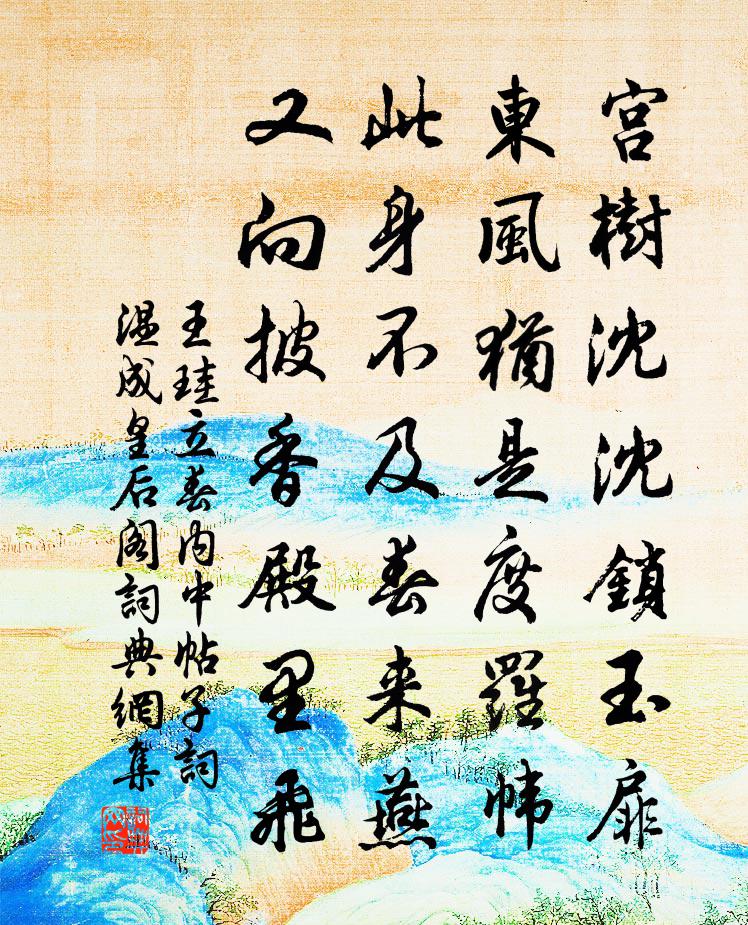 宮樹沈沈鎖玉扉
東風猶是度羅幃
此身不及春来燕
又向披香殿里飛
王珪立春内中帖子詞
温成皇后阁詞典網集